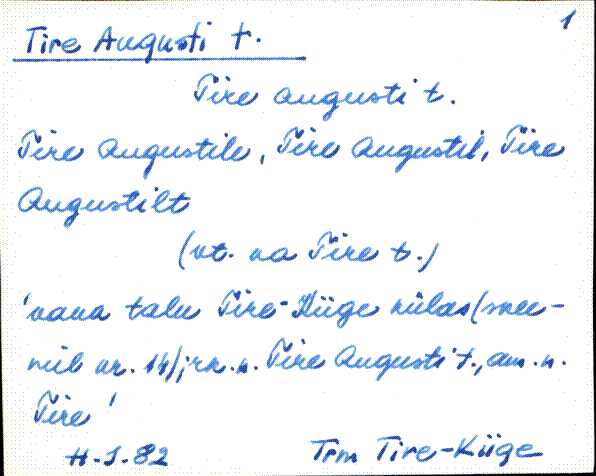 1
Tire Augusti t.
Tire Augusti t.
Tire Augustile, Tire Augustil, Tire
Augustilt
(vt. ka Tire t.)
'vana talu Tire-Kiige külas (mee-
nr. 14); rk.n. Tire Augusti t., am.n.
Tire'
H-J-82 Trm Tire-Kiige